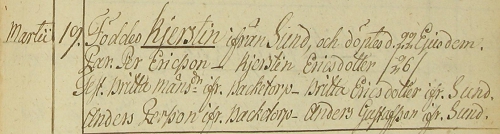 Martii 19. Föddes Kjerstin ifrån Sund, och döptes d. 22 Ejusdem.
Par. Per Ericsson – Kjerstin Ericsdotter /26/
Test. Britta Månsdr ifr. Backetorp – Britta Ericsdotter ifr. Sund.
Anders Persson ifr. Backetorp – Anders Gustafsson ifr. Sund.